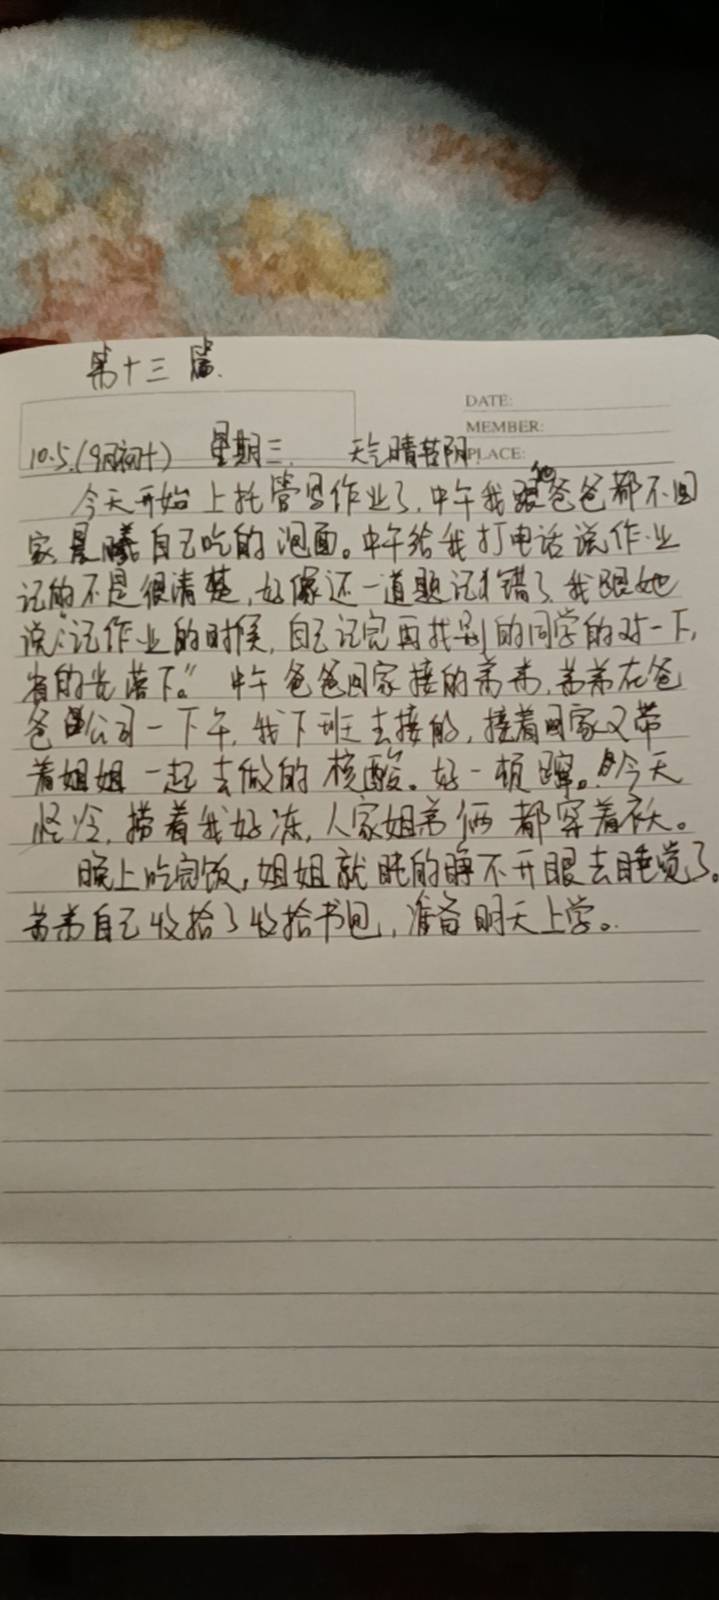 第十三篇.
DATE:
MEMBER:
PLACE:
10.5.(9月初十) 星期三. 天气晴转阴
今天开始上托管写作业了,中午我跟他爸爸都不回
家,晨曦自己吃的泡面。中午给我打电话说作业
记的不是很清楚,好像还一道题记错了,我跟她
说:记作业的时候,自己记完再找别的同学的对一下,
省的先落下。" 中午爸爸回家接的弟弟,弟弟在爸
爸公司一下午,我下班去接的,接着回家又带
着姐姐一起去做的核酸。好一顿蹿。今天
怪冷,拐着我好冻,人家姐弟俩都穿着大衣。
晚上吃完饭,姐姐就盹的睁不开眼去睡觉了。
弟弟自己收拾了收拾书包,准备明天上学。